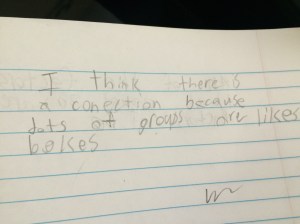 I think there is
a conection because
dats of groups are likes
bolses